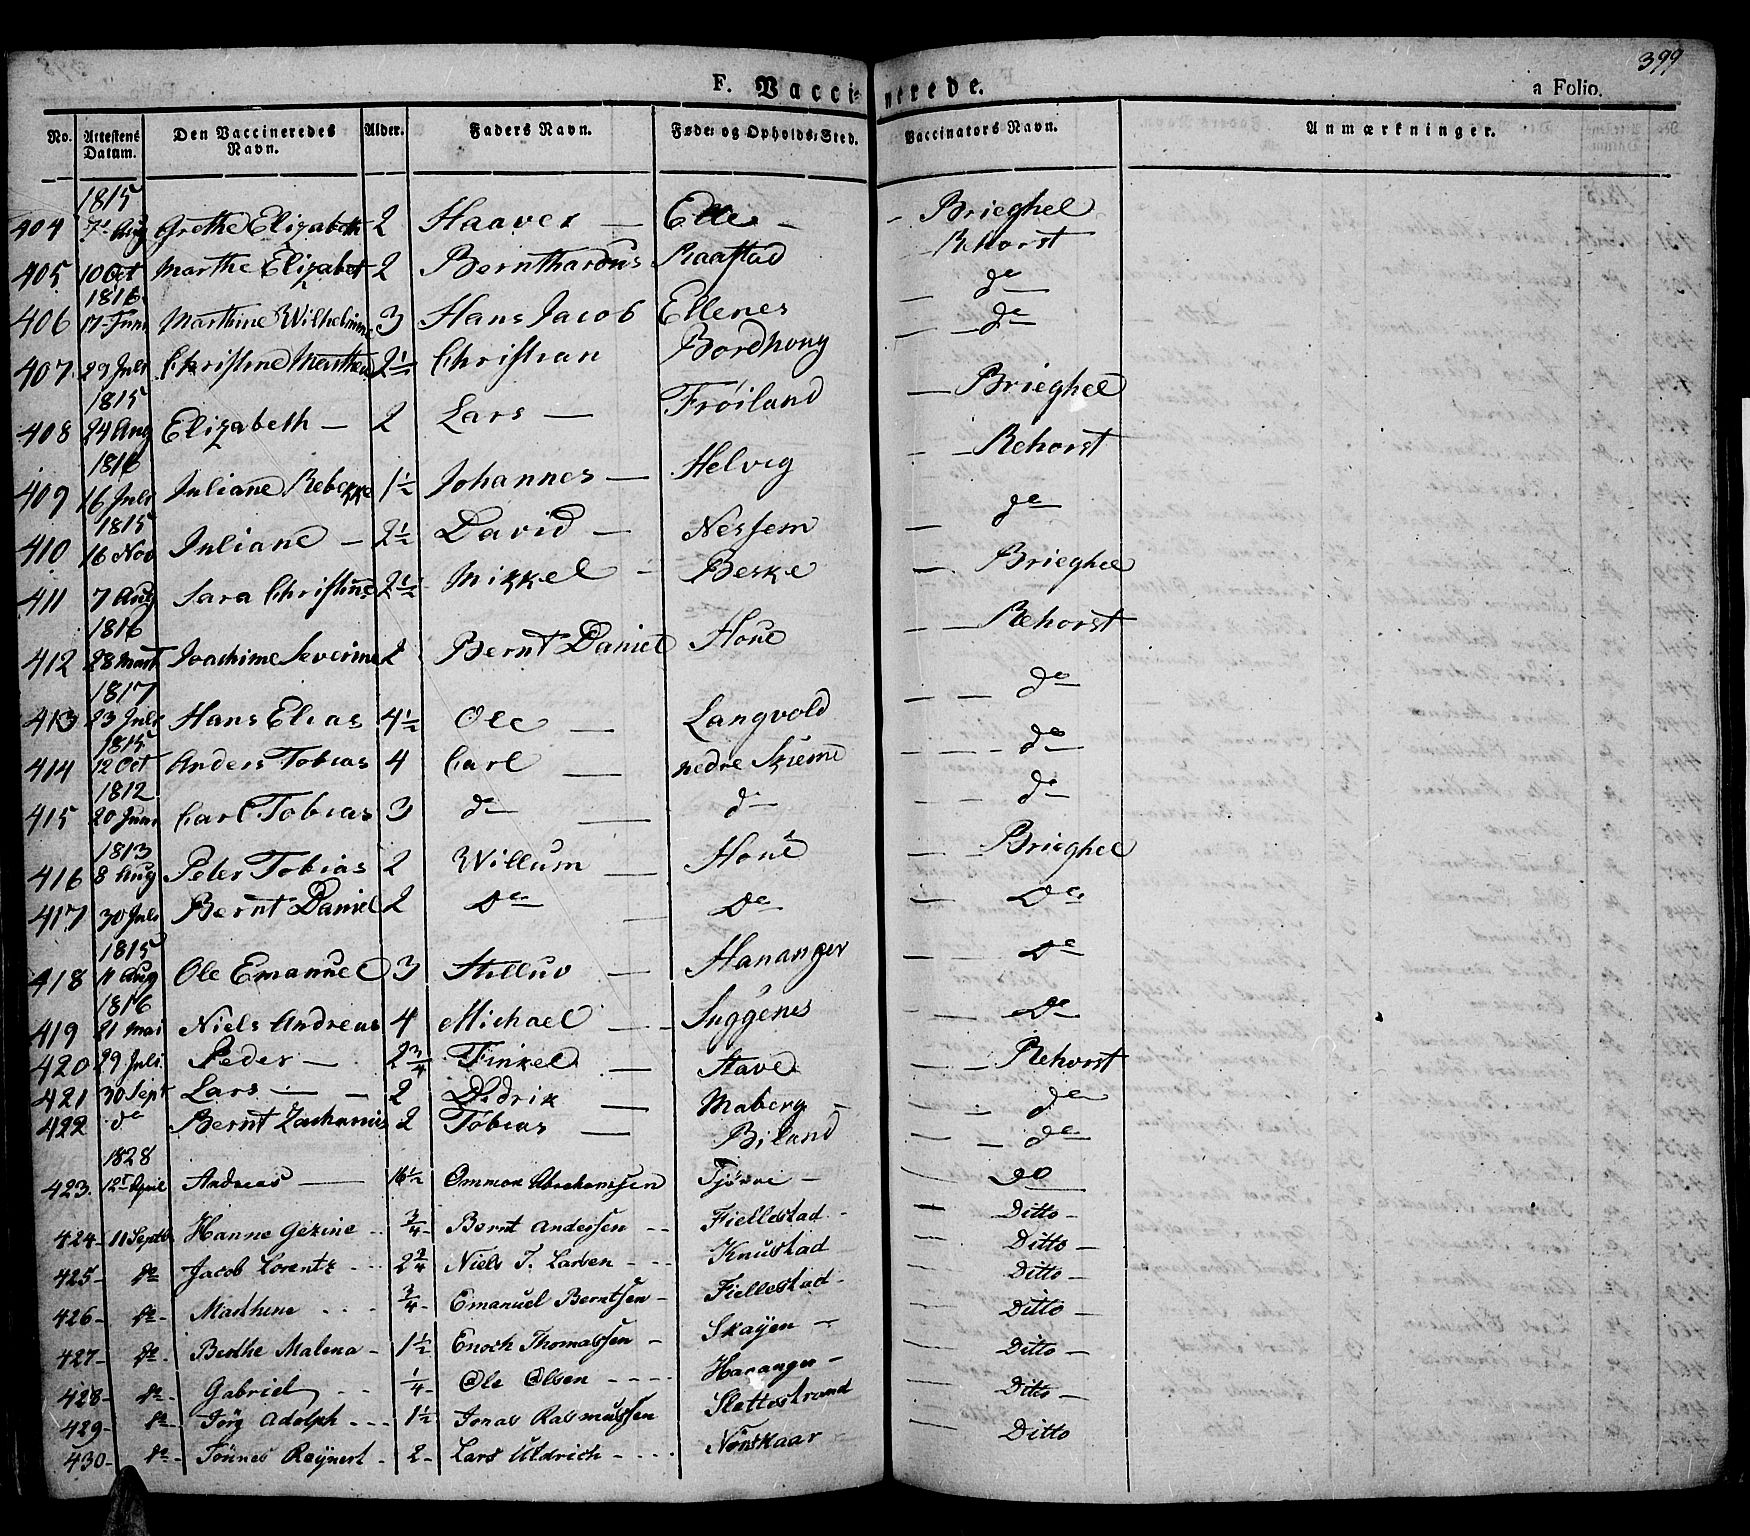 399
F. Vaccinerede. a Folio.
No. Attestens Datum. Den Vaccineredes Navn. Alder. Faders Navn. Føde- og Opholds-Sted. Vaccinators Navn. Anmærkninger.
1815
404 7de Aug Grethe Elizabeth 2 Haaver — Elle — — Brieghel
405 10 Oct Marthe Elizabet 2 Bernthardus Raastad — Rehorst
1816
406 17 Juni Marthine Wilhelmine 3 Hans Jacob Ellenes — de
407 29 Juli Christine Marthea 2½ Christian Bordhoug — — de
1815
408 24 Aug Elizabeth — 2 Lars — Frøiland — Brieghel
1816
409 16 Juli Juliane Rebekke 1½ Johannes — Helvig — — Rehorst
1815
410 16 Nov Juliane — 2½ David — Nessem — de
411 7 Aug Sara Christine 2½ Mikkel — Beske — Brieghel
1816
412 28 Mart Joachime Severine 2 Bernt Daniel Houe — — Rehorst
1817
413 23 Juli Hans Elias 4½ Ole — Langvold — — de
1815
414 12 Oct Anders Tobias 4 Carl — nedre Skieme — — — de
1812
415 20 Juni Carl Tobias 3 d— — d— — — de
1813
416 8 Aug Peter Tobias 2 Willum — Houe — — Brieghel
417 30 Juli Bernt Daniel 2 De — De — — De
1815
418 11 Aug Ole Emanuel 3 Stilluv — Hananger — — De
1816
419 21 Mai Niels Andreas 4 Michael — — Suggenes — — De
420 29 Juli Peder — 2¾ Finkel — Stave — — Rehorst
421 30 Sept Lars — — 2 Didrik — Maberg — — — de
422 de Bernt Zacharias 2 Tobias — Biland — — de
1828
423. 12te April Andreas — 16½ Ommon Abrahamsen Tjørve — — — do
424 — 11 Septb. Hanne Gezine — ¾ Bernt Andersen — Fiellestad — — Ditto —
425 — do Jacob Lorentz — 2¾ Niels T. Larsen — Knustad — Ditto —
426 — do — Marthine — ¾ — Emanuel Berntsen — Fiellestad — — Ditto —
427 — do — Berthe Malena — 1½ Enoch Thomassen — Skagen — — Ditto —
428 — do — Gabriel — ¼ — Ole Olsen — Hananger — — Ditto —
429 — do — Jörg Adolph — 1½ Jonas Rasmussen Slettestrand — Ditto —
430 — do — Tönnes Reynert — 2 — Lars Uldrich — Nonskaar — Ditto